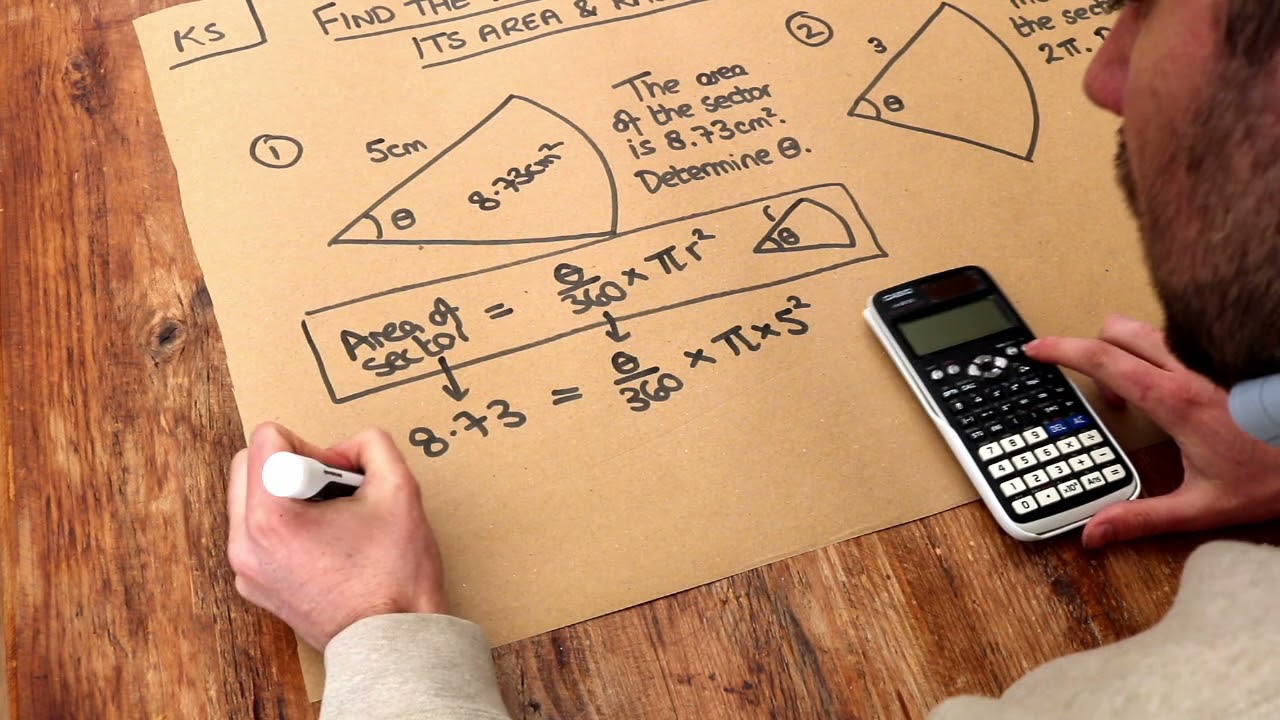 KS
FIND THE
ITS AREA &
①
5cm
θ
8.73cm²
The area
of the sector
is 8.73cm².
Determine θ.
②
3
θ
the sector
2π.
Area of
sector = θ/360 × πr²
r
θ
8.73 = θ/360 × π × 5²
CASIO
7 8 9 DEL AC
4 5 6 × ÷
1 2 3 + −
0 • ×10ˣ Ans =